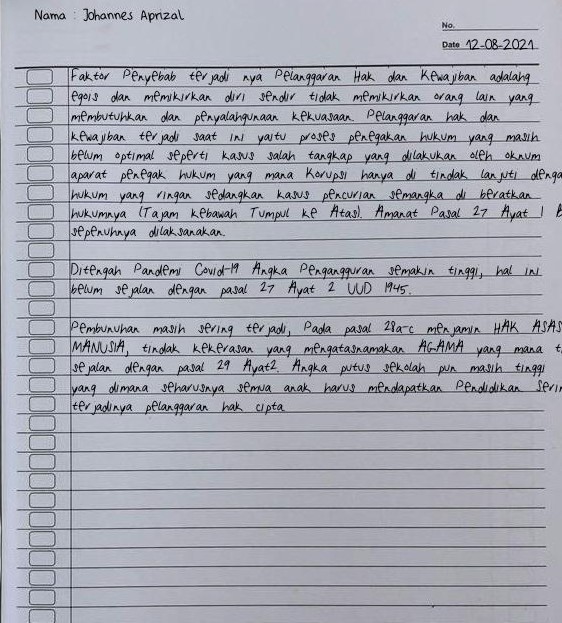 Nama : Johannes Aprizal
No.
Date 12-08-2021
Faktor Penyebab terjadi nya Pelanggaran Hak dan Kewajiban adalahg
egois dan memikirkan diri sendir tidak memikirkan orang lain yang
membutuhkan dan penyalahgunaan kekuasaan. Pelanggaran hak dan
kewajiban terjadi saat ini yaitu proses penegakan hukum yang masih
belum optimal seperti kasus salah tangkap yang dilakukan oleh oknum
aparat penegak hukum yang mana korupsi hanya di tindak lanjuti denga
hukum yang ringan sedangkan kasus pencurian semangka di beratkan
hukumnya (Tajam kebawah Tumpul ke Atas). Amanat Pasal 27 Ayat 1 B
sepenuhnya dilaksanakan.
Ditengah Pandemi Covid-19 Angka Pengangguran semakin tinggi, hal ini
belum sejalan dengan pasal 27 Ayat 2 UUD 1945.
Pembunuhan masih sering terjadi, Pada pasal 28a-c menjamin HAK ASAS
MANUSIA, tindak kekerasan yang mengatasnamakan AGAMA yang mana t
sejalan dengan pasal 29 Ayat2. Angka putus sekolah pun masih tinggi
yang dimana seharusnya semua anak harus mendapatkan Pendidikan Serin
terjadinya pelanggaran hak cipta